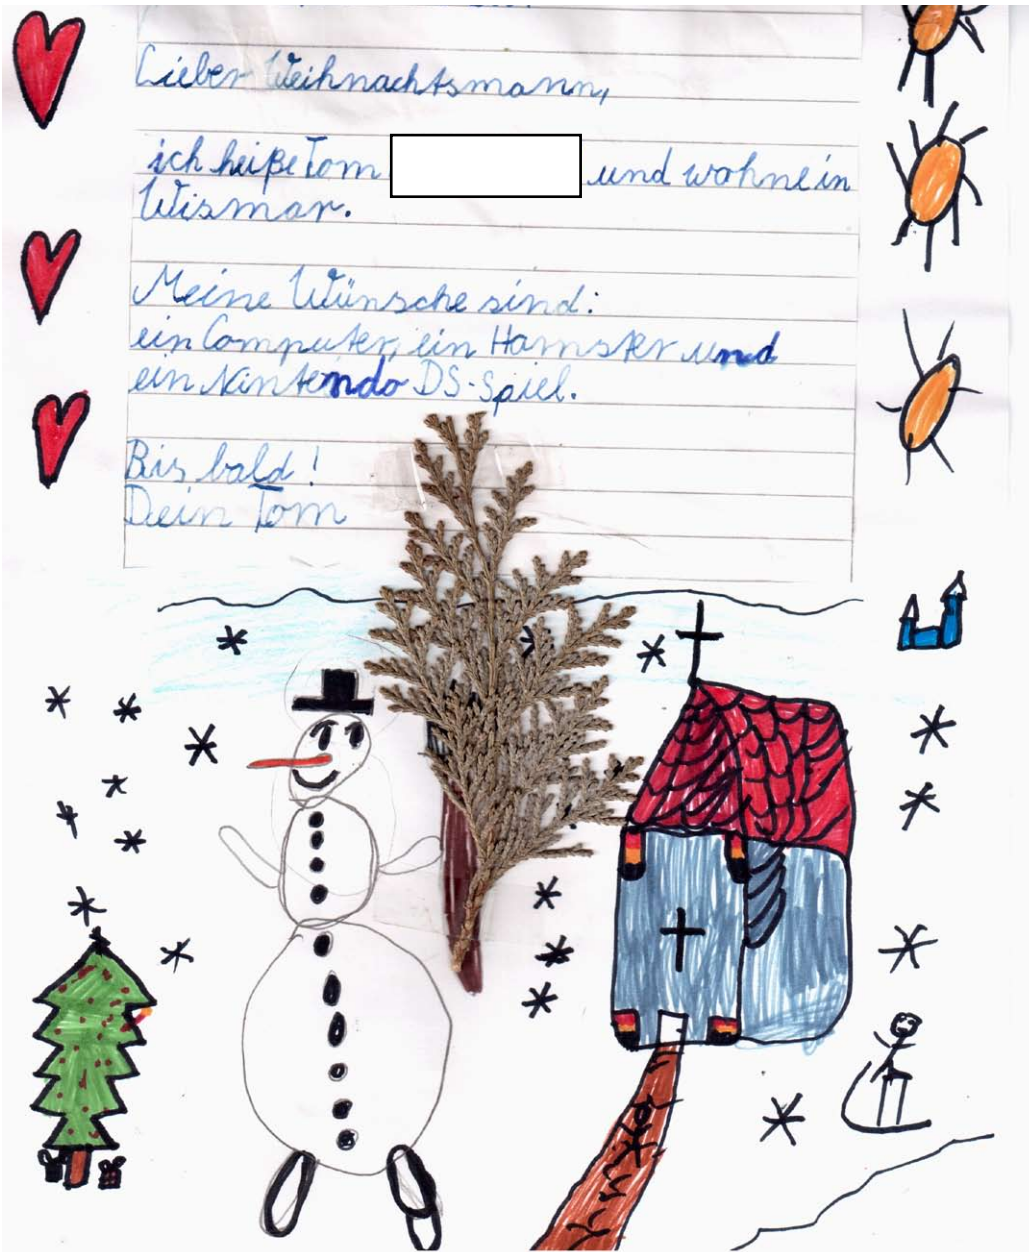 Lieber Weihnachtsmann,
ich heiße Tom und wohne in
Wismar.
Meine Wünsche sind:
ein Computer, ein Hamster und
ein Nintendo DS-Spiel.
Bis bald!
Dein Tom